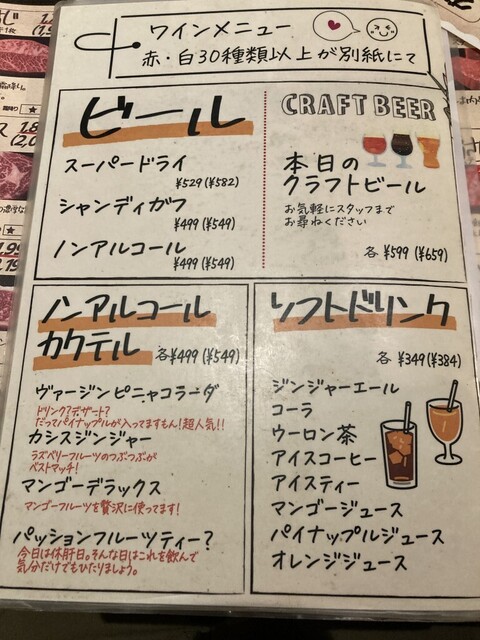 ワインメニュー
赤・白30種類以上が別紙にて
ビール
スーパードライ
¥529(¥582)
シャンディガフ
¥499(¥549)
ノンアルコール
¥499(¥549)
CRAFT BEER
本日の
クラフトビール
お気軽にスタッフまで
お尋ねください
各 ¥599(¥659)
ノンアルコール
カクテル 各¥499(¥549)
ヴァージンピニャコラーダ
ドリンク?デザート?
だってパイナップルが入ってますもん!超人気!!
カシスジンジャー
ラズベリーフルーツのつぶつぶが
ベストマッチ!
マンゴーデラックス
マンゴーフルーツを贅沢に使ってます!
パッションフルーツティー?
今日は休肝日。そんな日はこれを飲んで
気分だけでもひたりましょう。
ソフトドリンク
各 ¥349(¥384)
ジンジャーエール
コーラ
ウーロン茶
アイスコーヒー
アイスティー
マンゴージュース
パイナップルジュース
オレンジジュース